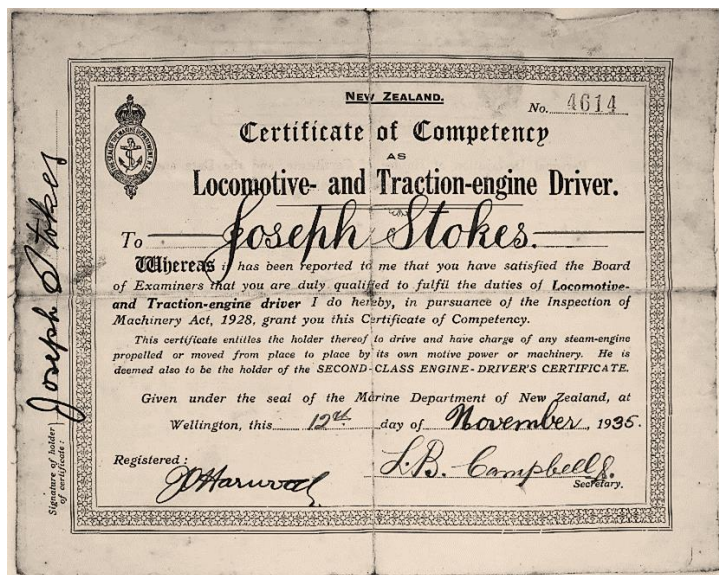 NEW ZEALAND.
No. 4614
Certificate of Competency
AS
Locomotive- and Traction-engine Driver.
To Joseph Stokes.
Whereas it has been reported to me that you have satisfied the Board
of Examiners that you are duly qualified to fulfil the duties of Locomotive-
and Traction-engine driver I do hereby, in pursuance of the Inspection of
Machinery Act, 1928, grant you this Certificate of Competency.
This certificate entitles the holder thereof to drive and have charge of any steam-engine
propelled or moved from place to place by its own motive power or machinery. He is
deemed also to be the holder of the SECOND-CLASS ENGINE-DRIVER'S CERTIFICATE.
Given under the seal of the Marine Department of New Zealand, at
Wellington, this 12th day of November, 1935.
Registered:
L.B. Campbell
Secretary.
Signature of holder
of certificate:
Joseph Stokes